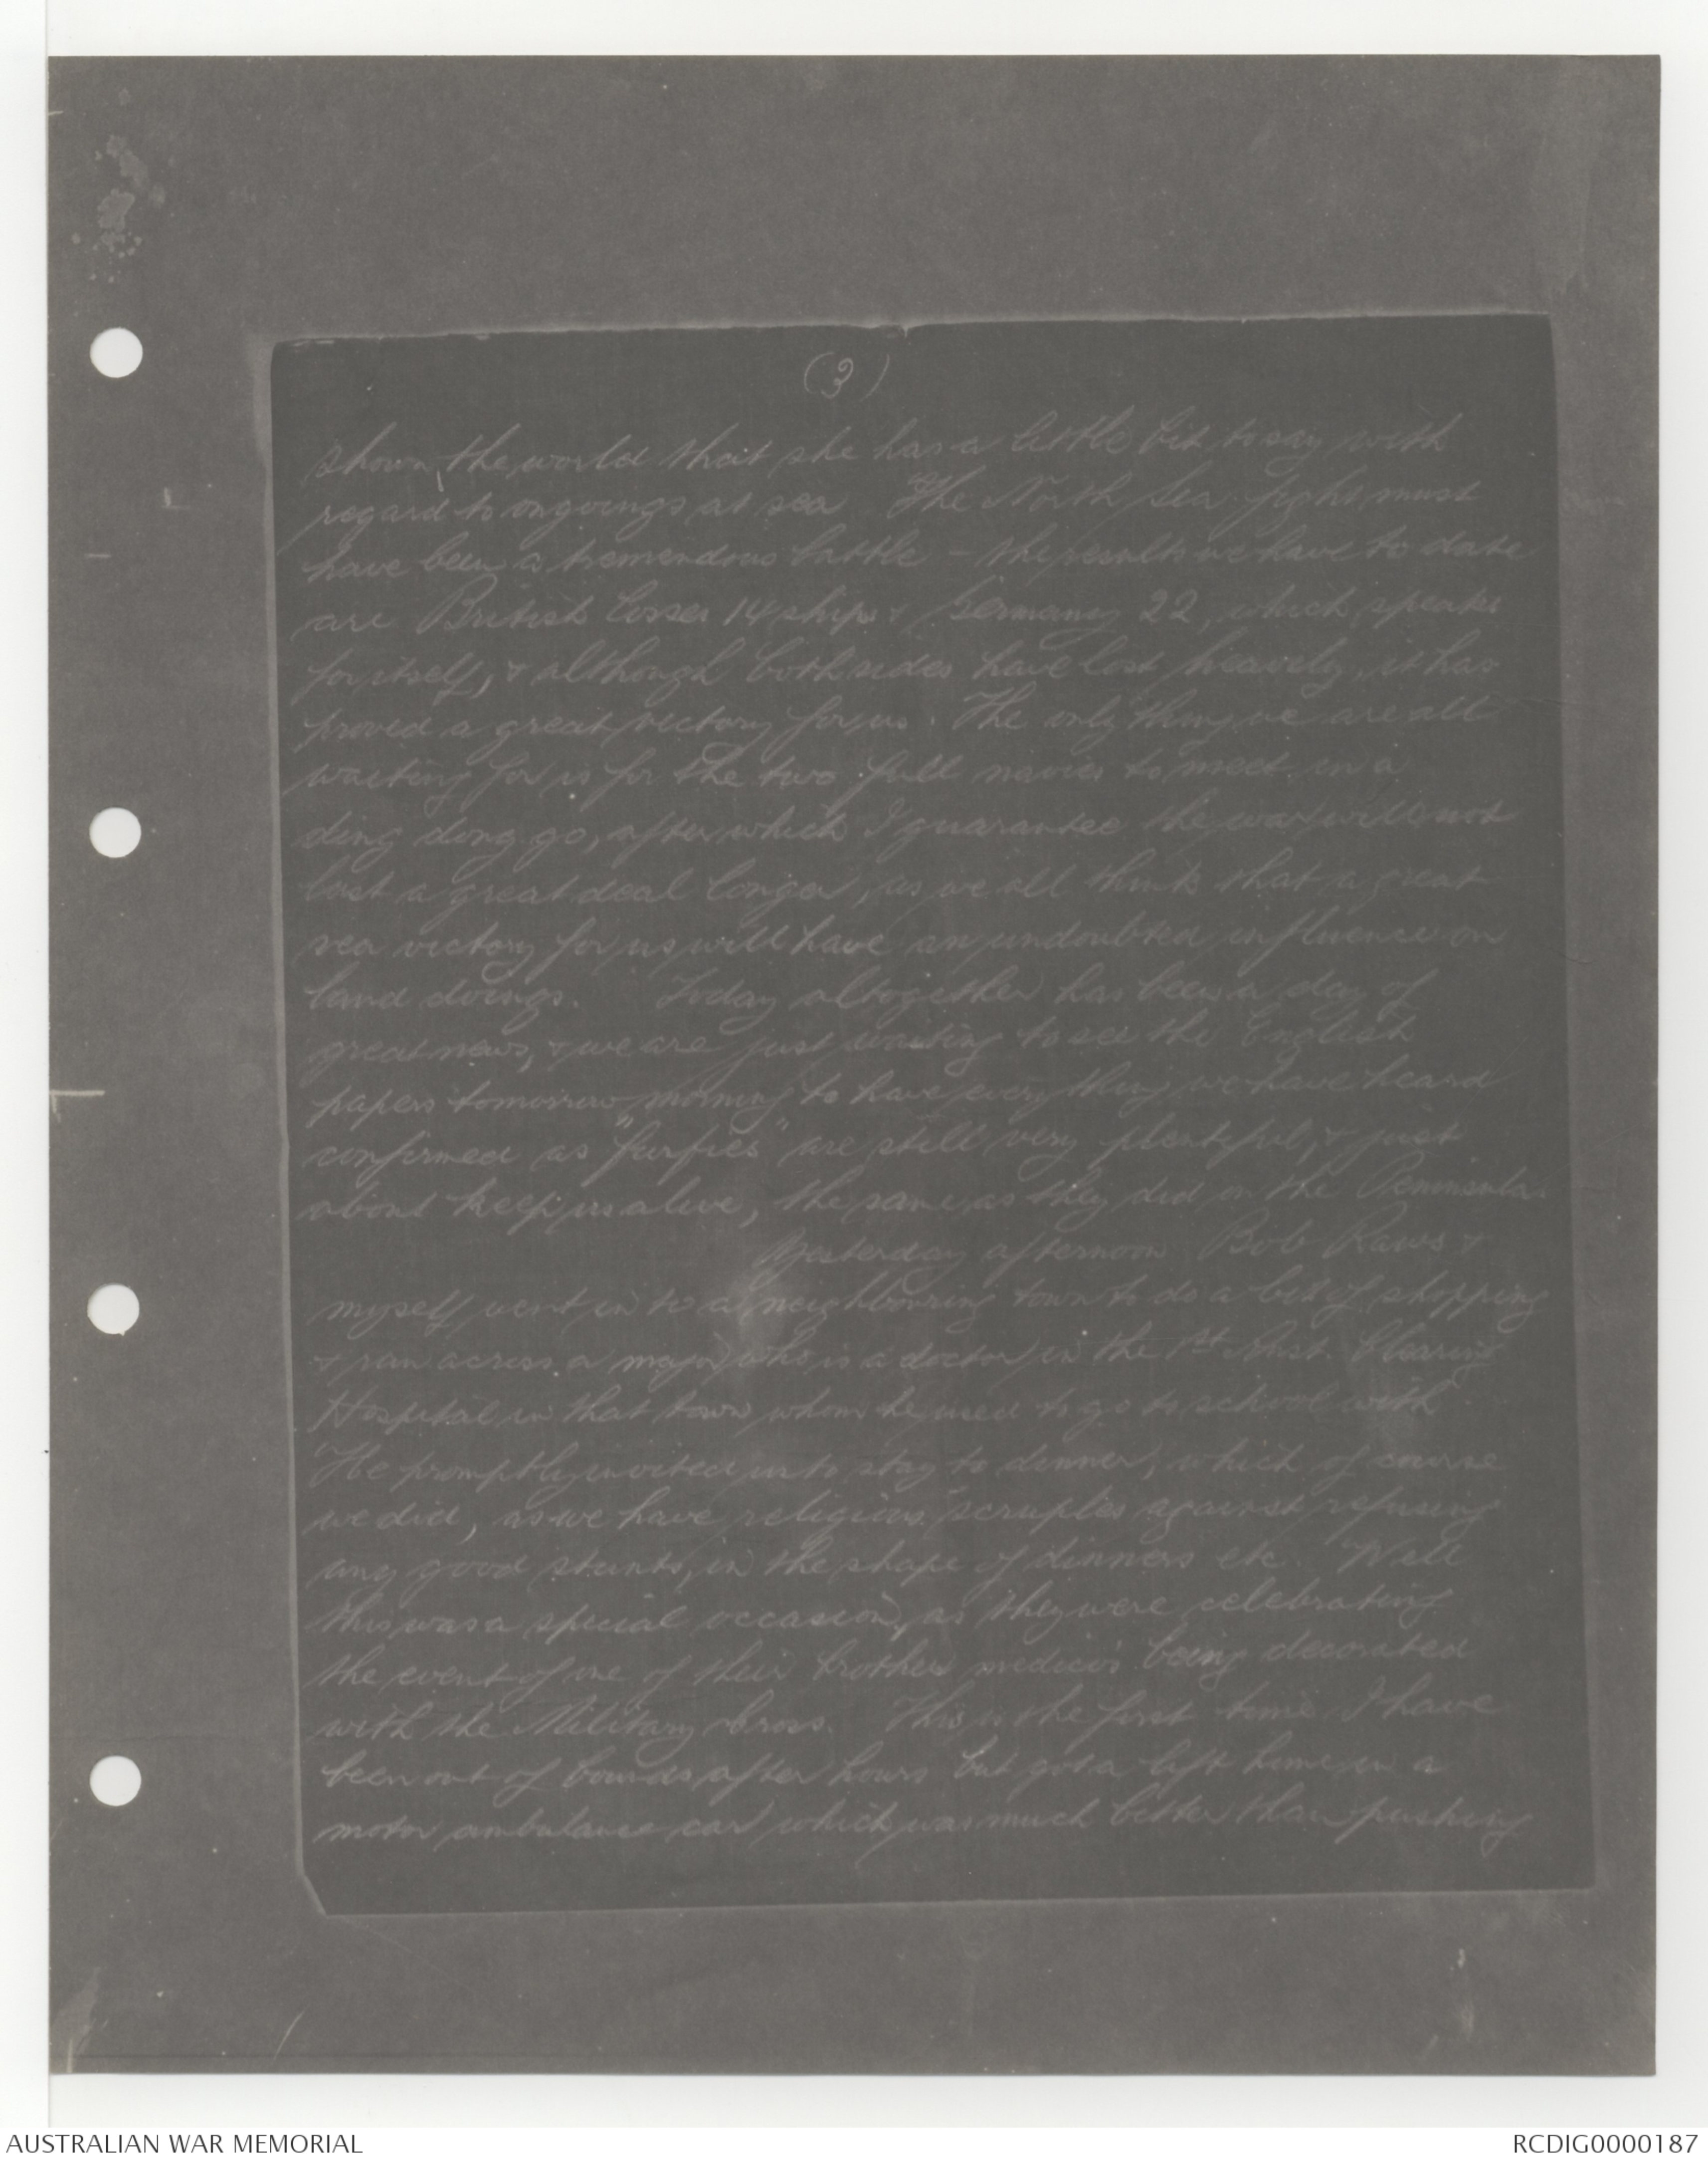 (3)
shown the world that she has a little bit to say with
regard to ongoings at sea The North Sea fight must
have been a tremendous battle - the results we have to date
are British losses 14 ships & Germany 22, which speaks
for itself, & although both sides have lost heavily, it has
proved a great victory for us. The only thing we are all
waiting for is for the two full navies to meet in a
ding dong go, after which I guarantee the war will not
last a great deal longer, as we all think that a great
sea victory for us will have an undoubted influence on
land doings. Today altogether has been a day of
great news, & we are just waiting to see the English
papers tomorrow morning to have everything we have heard
confirmed as "furfies" are still very plentiful, & just
about keep us alive, the same as they did on the Peninsula.
Yesterday afternoon Bob Raws &
myself went in to a neighbouring town to do a bit of shopping
& ran across a major who is a doctor in the 1st Aust. Clearing
Hospital in that town whom he used to go to school with
He promptly invited us to stay to dinner, which of course
we did, as we have religious scruples against refusing
any good stunts, in the shape of dinners etc. Well
this was a special occasion, as they were celebrating
the event of one of their brother medico's being decorated
with the Military Cross. This is the first time I have
been out of bounds after hours but got a lift home in a
motor ambulance car which was much better than pushing
AUSTRALIAN WAR MEMORIAL
RCDIG0000187